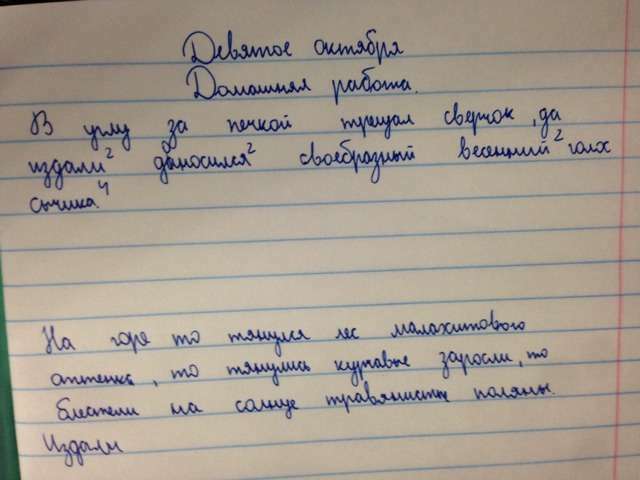 Девятое октября
Домашняя работа.
В углу за печкой трещал сверчок, да
издали² доносился² своеобразный весенний² голос
сычика.⁴
На горе то тянулся лес малахитового
оттенка, то тянулись курчавые заросли, то
блестели на солнце травянистые поляны.
Издали